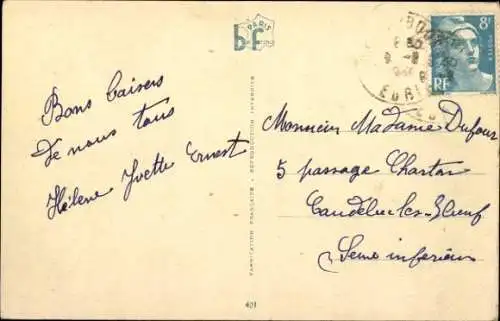 PARIS
bf
8F
RF
EURE
Bons baisers
de nous tous
Hélène Yvette Ernest
FABRICATION FRANÇAISE - REPRODUCTION INTERDITE
Monsieur Madame Dufour
5 passage Charton
Caudebec-les-Elbeuf
Seine inférieure
401